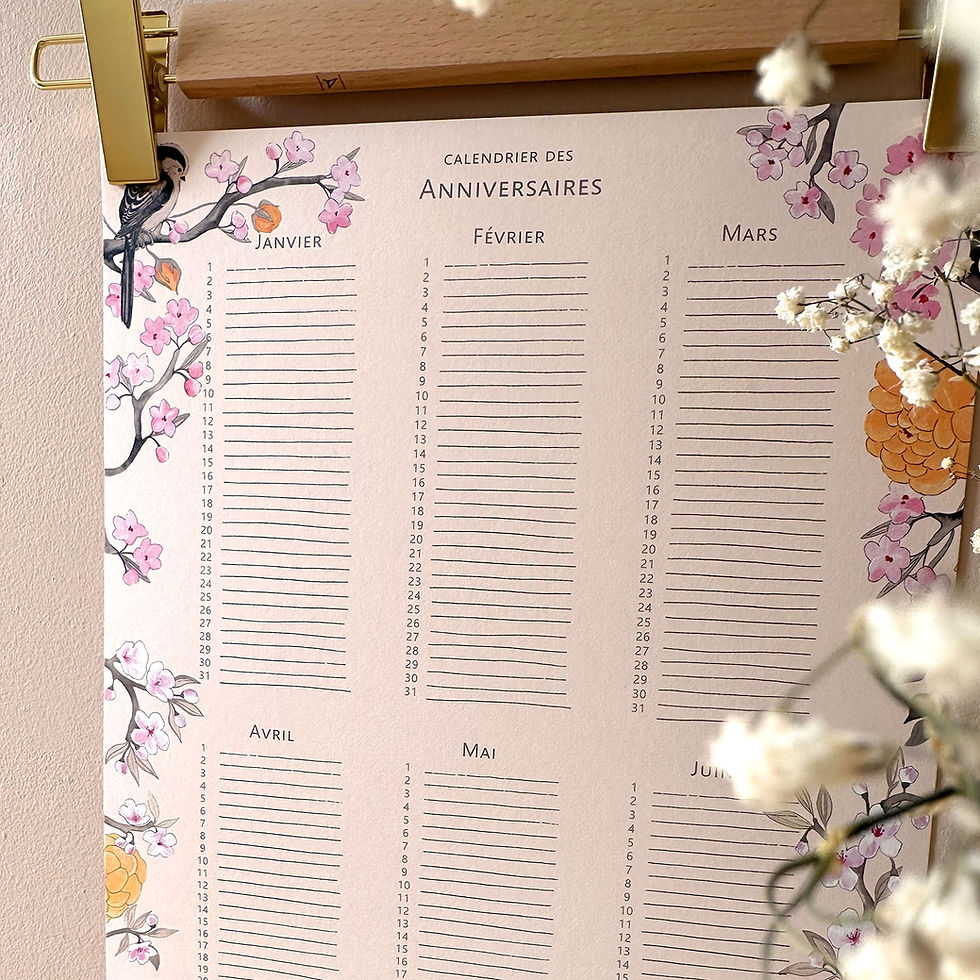 CALENDRIER DES
ANNIVERSAIRES
JANVIER
1
2
3
4
5
6
7
8
9
10
11
12
13
14
15
16
17
18
19
20
21
22
23
24
25
26
27
28
29
30
31
FÉVRIER
1
2
3
4
5
6
7
8
9
10
11
12
13
14
15
16
17
18
19
20
21
22
23
24
25
26
27
28
29
30
31
MARS
1
2
3
4
5
6
7
8
9
10
11
12
13
14
15
16
17
18
19
20
21
22
23
24
25
26
27
28
29
30
31
AVRIL
1
2
3
4
5
6
7
8
9
10
11
12
13
14
15
16
17
18
19
20
MAI
1
2
3
4
5
6
7
8
9
10
11
12
13
14
15
16
17
JUIN
1
2
3
4
5
6
7
8
9
10
11
12
13
14
15